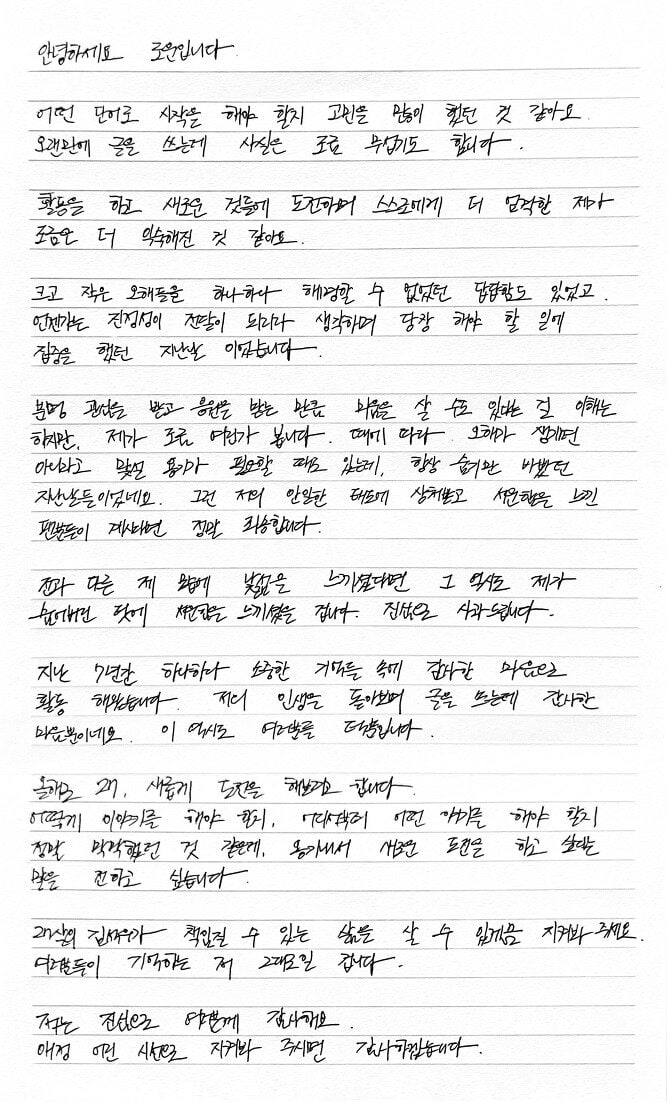 안녕하세요 로운입니다.
어떤 단어로 시작을 해야 할지 고민을 많이 했던 것 같아요.
오랜만에 글을 쓰는데 사실은 조금 무섭기도 합니다.
활동을 하고 새로운 것들에 도전하며 스스로에게 더 엄격한 제가
조금은 더 익숙해진 것 같아요.
크고 작은 오해들을 하나하나 해명할 수 없었던 답답함도 있었고.
언젠가는 진정성이 전달이 되리라 생각하며 당장 해야 할 일에
집중을 했던 지난날 이었습니다.
분명 관심을 받고 응원을 받는 만큼 미움을 살 수도 있다는 걸 이해는
하지만, 제가 조금 여린가 봅니다. 때에 따라 오해가 생기면
아니라고 맞설 용기가 필요할 때도 있는데, 항상 숨기만 바빴던
지난날들이었네요. 그런 저의 안일한 태도에 상처받고 서운함을 느낀
팬분들이 계신다면 정말 죄송합니다.
전과 다른 제 모습에 낯섦을 느끼셨다면 그 역시도 제가
숨어버린 탓에 서운함을 느끼셨을 겁니다. 진심으로 사과드립니다.
지난 7년간 하나하나 소중한 기억들 속에 감사한 마음으로
활동 해왔습니다. 저의 인생을 돌아보며 글을 쓰는데 감사한
마음뿐이네요. 이 역시도 여러분들 덕분입니다.
올해로 27, 새롭게 도전을 해보려고 합니다.
어떻게 이야기를 해야 할지, 어디서부터 어떤 얘기를 해야 할지
정말 막막했던 것 같은데, 용기내서 새로운 도전을 하고 싶다는
말을 전하고 싶습니다.
27살의 김석우가 책임질 수 있는 삶을 살 수 있게끔 지켜봐 주세요.
여러분들이 기억하는 저 그대로일 겁니다.
저는 진심으로 여러분께 감사해요.
애정 어린 시선으로 지켜봐 주시면 감사하겠습니다.